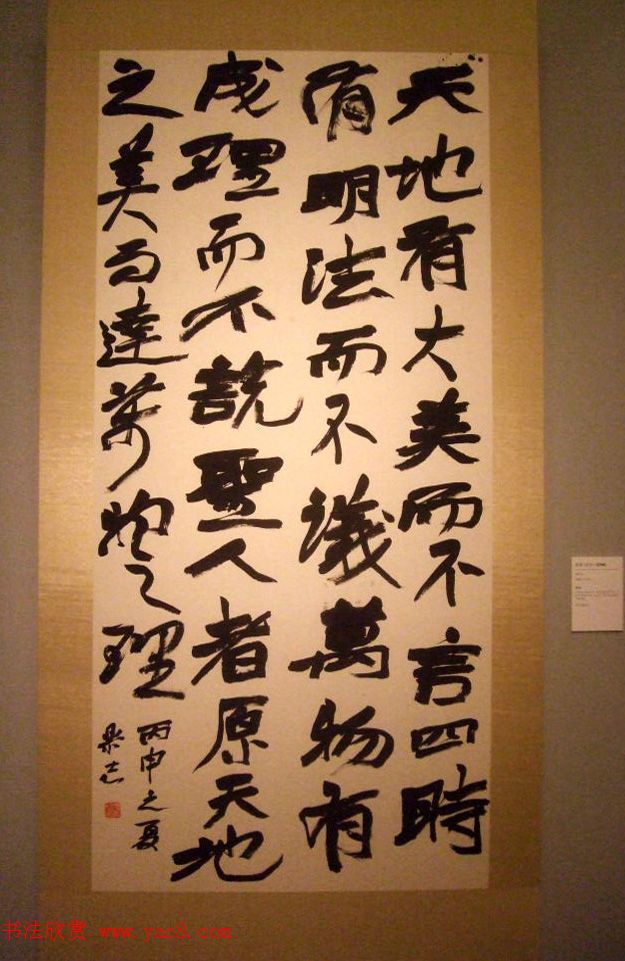 天地有大美而不言四時
有明法而不議萬物有
成理而不說聖人者原天地
之美而達萬物之理
丙申之夏
樂志
书法欣赏 www.yac8.com